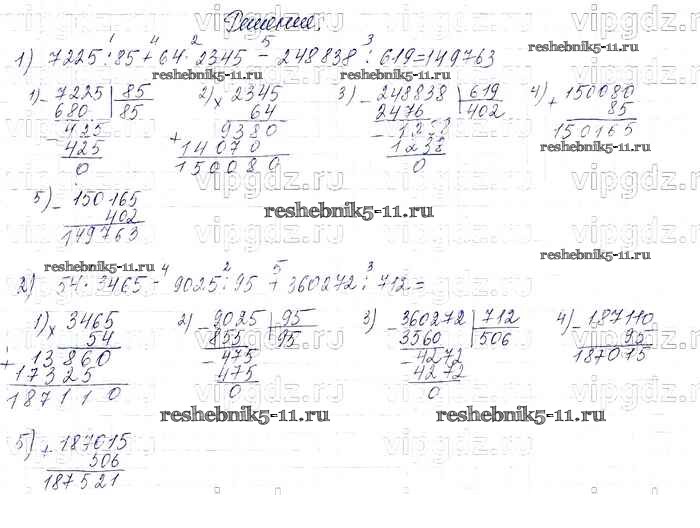 Решение.
1) 7225 : 85 + 64 · 2345 - 248838 : 619 = 149763
1 4 2 5 3
1) 7225 | 85
680 | 85
425
425
0
2) × 2345
64
9380
+ 14070
150080
3) - 248838 | 619
2476 | 402
- 1238
1238
0
4) + 150080
85
150165
5) - 150165
402
149763
2) 54 · 3465 - 9025 : 95 + 360272 : 712 =
4 2 5 3
1) × 3465
54
+ 13860
17325
187110
2) - 9025 | 95
855 | 95
- 475
475
0
3) - 360272 | 712
3560 | 506
- 4272
4272
0
4) - 187110
95
187015
5) + 187015
506
187521
reshebnik5-11.ru
reshebnik5-11.ru
reshebnik5-11.ru
reshebnik5-11.ru
reshebnik5-11.ru
reshebnik5-11.ru
reshebnik5-11.ru
reshebnik5-11.ru
vipgdz.ru
vipgdz.ru
vipgdz.ru
vipgdz.ru